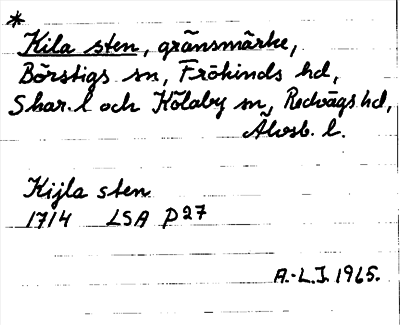 *
Kila sten, gränsmärke,
Börstigs sn, Frökinds hd,
Skar. l och Kölaby sn, Redvägs hd,
Älvsb. l.
Kijla sten
1714 LSA P27
A.-L.J. 1965.